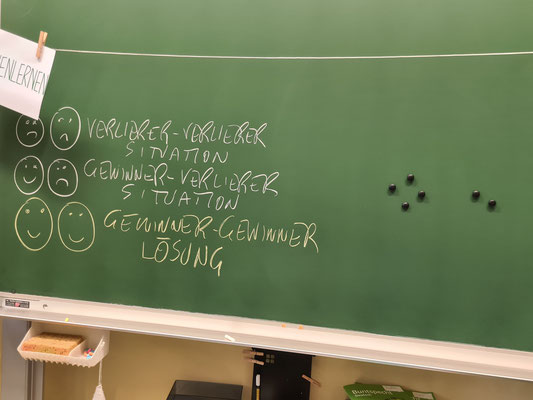 ENLERNEN
VERLIERER-VERLIERER
SITUATION
GEWINNER-VERLIERER
SITUATION
GEWINNER-GEWINNER
LÖSUNG
Buntspecht